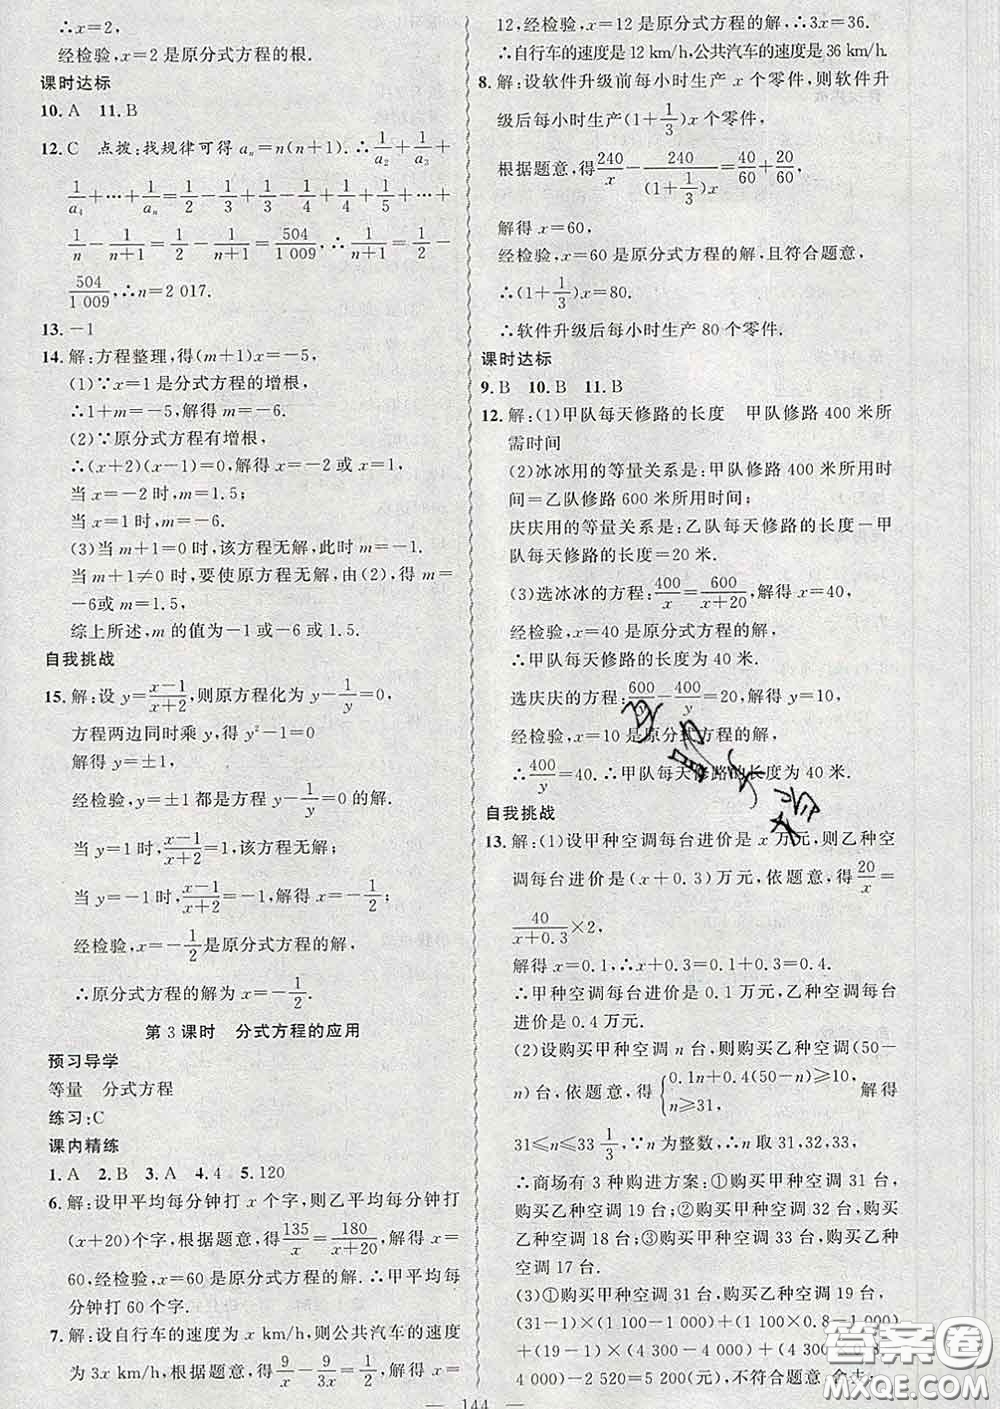 ∴x=2,
经检验,x=2是原分式方程的根.
课时达标
10. A  11. B
12. C  点拨:找规律可得 aₙ=n(n+1).∴1/a₂+1/a₃+
1/a₄+…+1/aₙ=1/2-1/3+1/3-1/4+1/4-1/5+…+
1/n-1/(n+1)=1/2-1/(n+1)=504/1 009,∴1/(n+1)=1/2-
504/1 009,∴n=2 017.
13. -1
14. 解:方程整理,得(m+1)x=-5,
(1)∵x=1是分式方程的增根,
∴1+m=-5,解得m=-6.
(2)∵原分式方程有增根,
∴(x+2)(x-1)=0,解得x=-2或x=1,
当x=-2时,m=1.5;
当x=1时,m=-6.
(3)当m+1=0时,该方程无解,此时m=-1;
当m+1≠0时,要使原方程无解,由(2),得m=
-6或m=1.5,
综上所述,m的值为-1或-6或1.5.
自我挑战
15. 解:设y=(x-1)/(x+2),则原方程化为y-1/y=0,
方程两边同时乘y,得y²-1=0
解得y=±1,
经检验,y=±1都是方程y-1/y=0的解.
当y=1时,(x-1)/(x+2)=1,该方程无解;
当y=-1时,(x-1)/(x+2)=-1,解得x=-1/2,
经检验,x=-1/2是原分式方程的解,
∴原分式方程的解为x=-1/2.
第3课时  分式方程的应用
预习导学
等量  分式方程
练习:C
课内精练
1. A  2. B  3. A  4. 4  5. 120
6. 解:设甲平均每分钟打x个字,则乙平均每分钟打
(x+20)个字,根据题意,得135/x=180/(x+20),解得x=
60,经检验,x=60是原分式方程的解.∴甲平均每
分钟打60个字.
7. 解:设自行车的速度为x km/h,则公共汽车的速度
为3x km/h,根据题意,得9/x-9/3x=1/2,解得x=
12,经检验,x=12是原分式方程的解,∴3x=36.
∴自行车的速度是12 km/h,公共汽车的速度是36 km/h.
8. 解:设软件升级前每小时生产x个零件,则软件升
级后每小时生产(1+1/3)x个零件,
根据题意,得240/x-240/((1+1/3)x)=40/60+20/60,
解得x=60,
经检验,x=60是原方程的解,且符合题意,
∴(1+1/3)x=80.
∴软件升级后每小时生产80个零件.
课时达标
9. B  10. B  11. B
12. 解:(1)甲队每天修路的长度  甲队修路400米所
需时间
(2)冰冰用的等量关系是:甲队修路400米所用时
间=乙队修路600米所用时间;
庆庆用的等量关系是:乙队每天修路的长度-甲
队每天修路的长度=20米.
(3)选冰冰的方程:400/x=600/(x+20),解得x=40,
经检验,x=40是原分式方程的解,
∴甲队每天修路的长度为40米.
选庆庆的方程:600/y-400/y=20,解得y=10,
经检验,x=10是原分式方程的解,
∴400/y=40.∴甲队每天修路的长度为40米.
自我挑战
13. 解:(1)设甲种空调每台进价是x万元,则乙种空
调每台进价是(x+0.3)万元,依题意,得20/x=
40/(x+0.3)×2,
解得x=0.1,∴x+0.3=0.1+0.3=0.4.
∴甲种空调每台进价是0.1万元,乙种空调每台
进价是0.4万元.
(2)设购买甲种空调n台,则购买乙种空调(50-
n)台,依题意,得{0.1n+0.4(50-n)≥10, n≥31, 解得
31≤n≤33 1/3,∵n为整数,∴n取31,32,33.
∴商场有3种购进方案:①购买甲种空调31台,
购买乙种空调19台;②购买甲种空调32台,购买
乙种空调18台;③购买甲种空调33台,购买乙种
空调17台.
(3)①购买甲种空调31台,购买乙种空调19台,
(31-1)×(1 100-1 000)+(1 100×
+(19-1)×(4 300-4 000)+(
4 000)-2 520=5 200(元),不符合题意,
144
答案圈
MXQE.COM